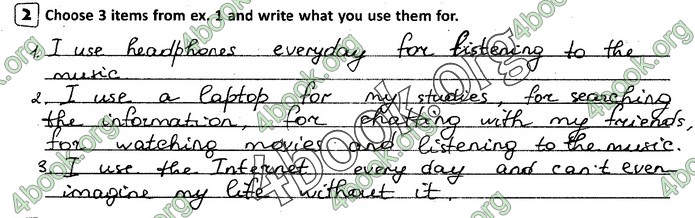 2 Choose 3 items from ex. 1 and write what you use them for.
1. I use headphones everyday for listening to the
music
2. I use a laptop for my studies, for searching
the information, for chatting with my friends,
for watching movies and listening to the music.
3. I use the Internet every day and can't even
imagine my life without it.
4book.org